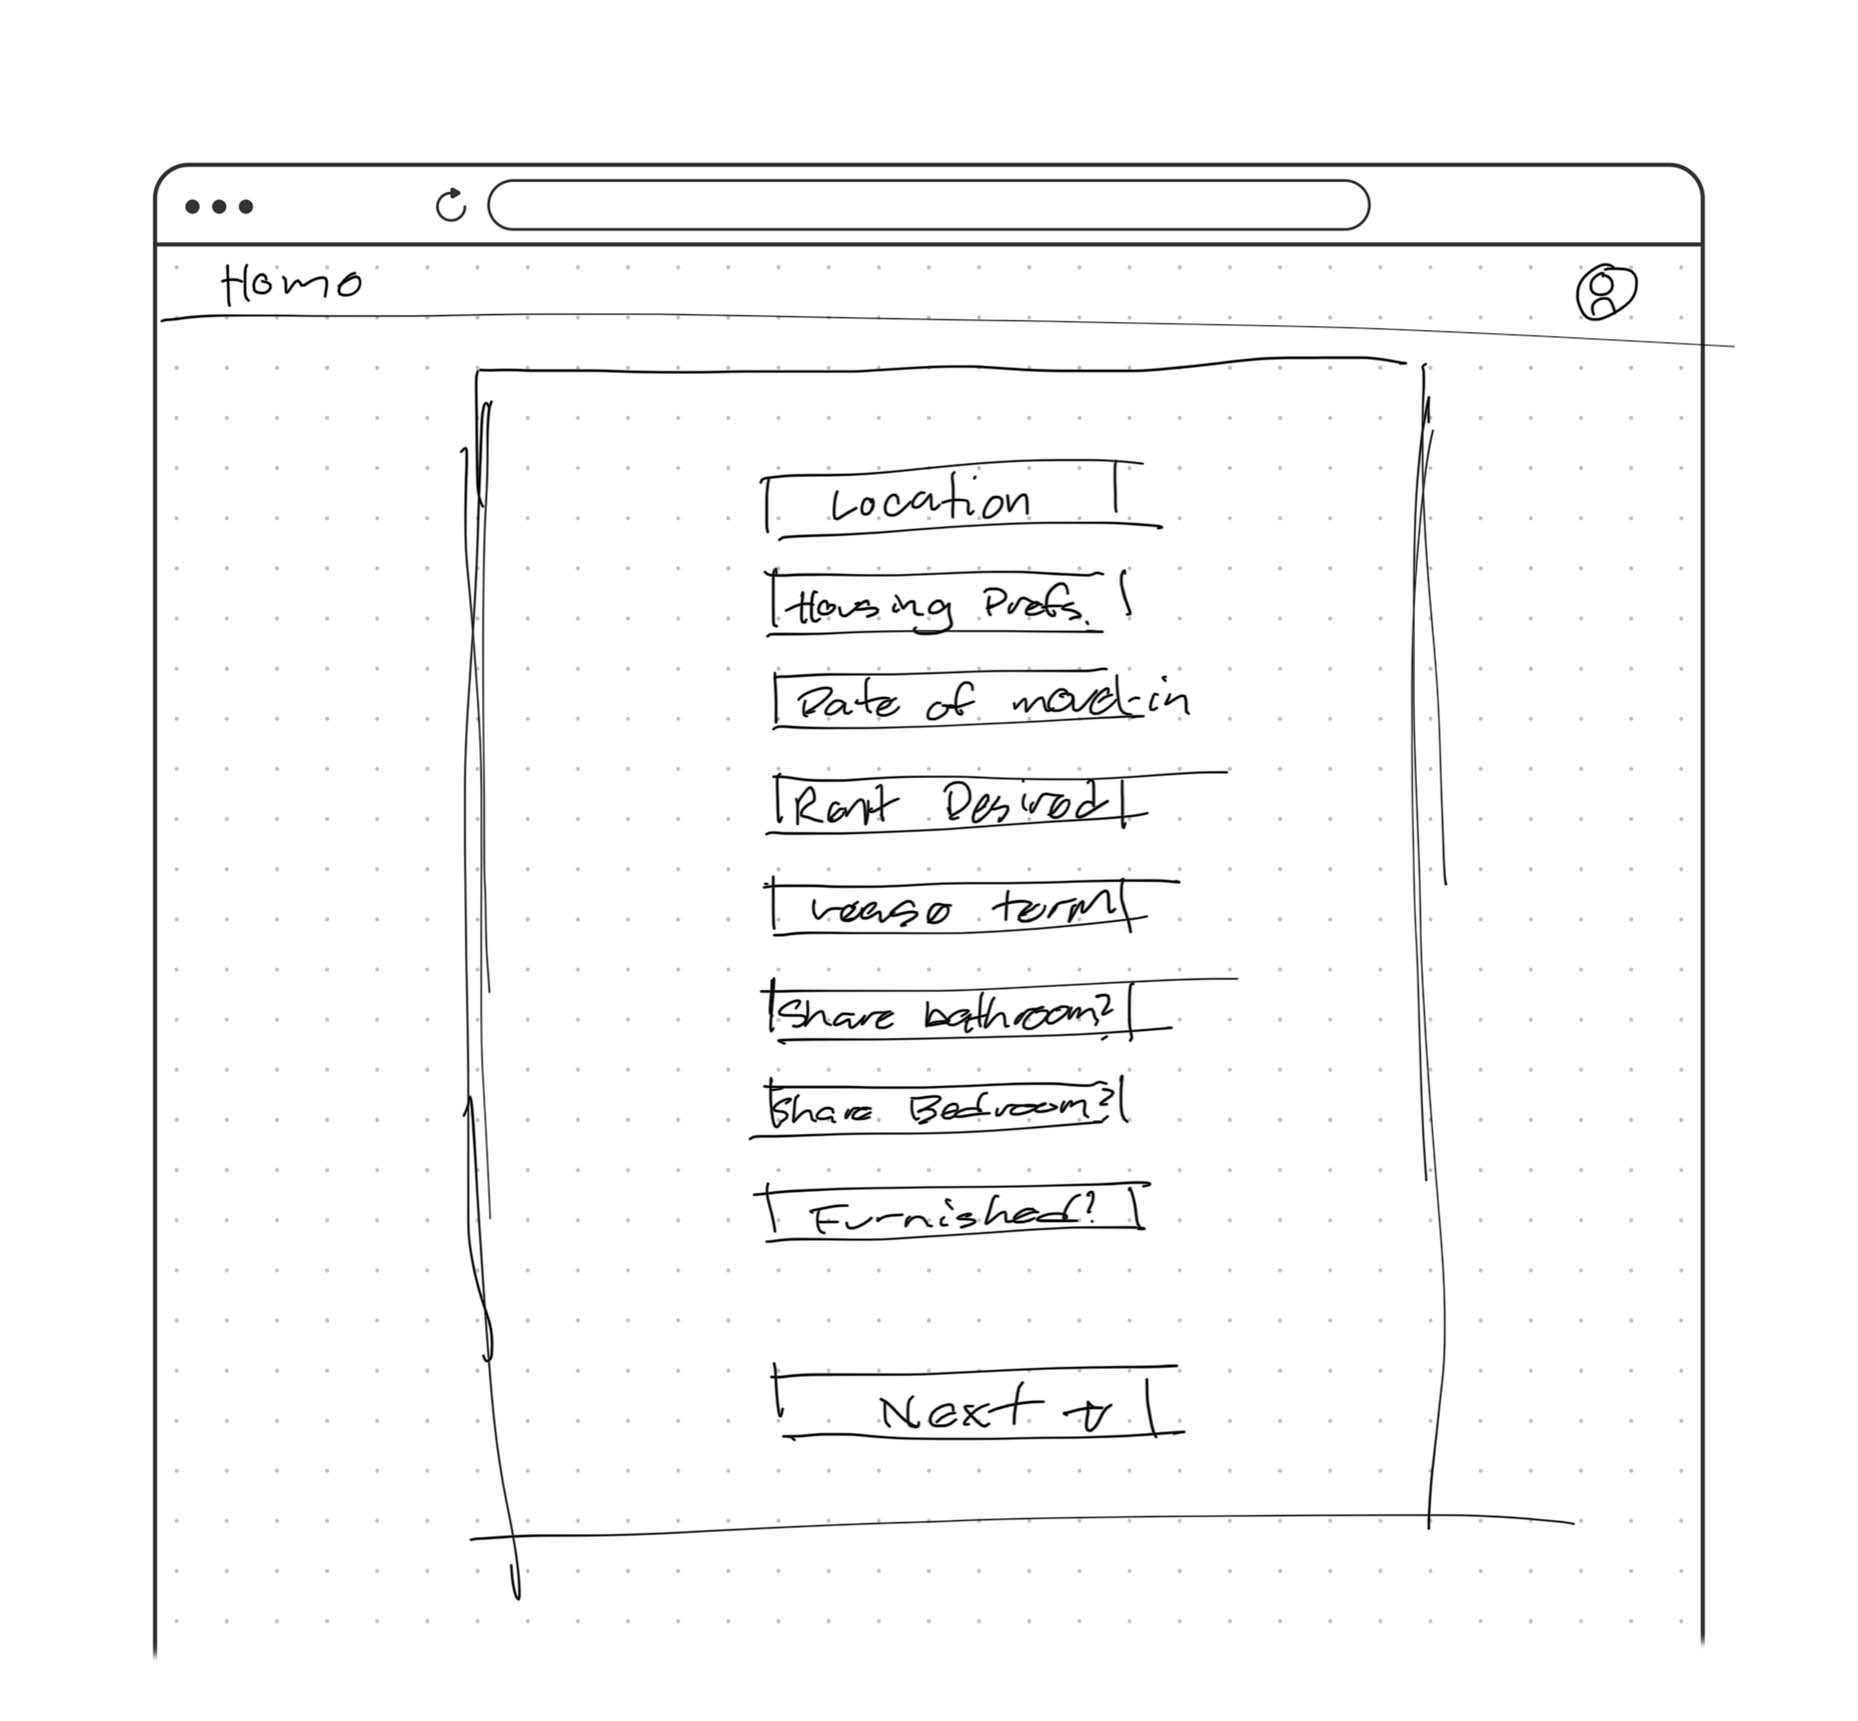 Home
Location
Housing Prefs.
Date of move-in
Rent Desired
Lease term
Share bathroom?
Share Bedroom?
Furnished?
Next →